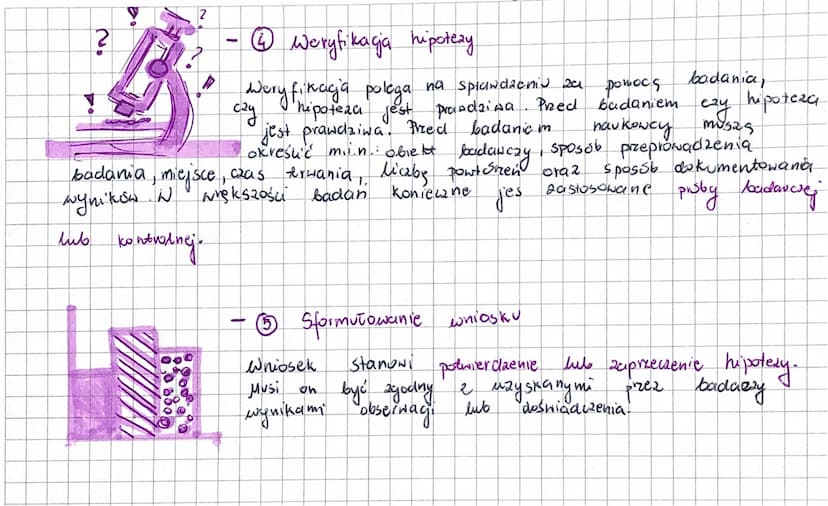 ? ! ?
?
! !
- ④ Weryfikacja hipotezy
Weryfikacja polega na sprawdzeniu za pomocą badania,
czy hipoteza jest prawdziwa. Przed badaniem czy hipoteza
jest prawdziwa. Przed badaniem naukowcy muszą
określić m.in.: obiekt badawczy, sposób przeprowadzenia
badania, miejsce, czas trwania, liczbę powtórzeń oraz sposób dokumentowania
wyników. W większości badań konieczne jes zastosowane próby badawczej
lub kontrolnej.
- ⑤ Sformułowanie wniosku
Wniosek stanowi potwierdzenie lub zaprzeczenie hipotezy.
Musi on być zgodny z uzyskanymi przez badaczy
wynikami obserwacji lub doświadczenia.